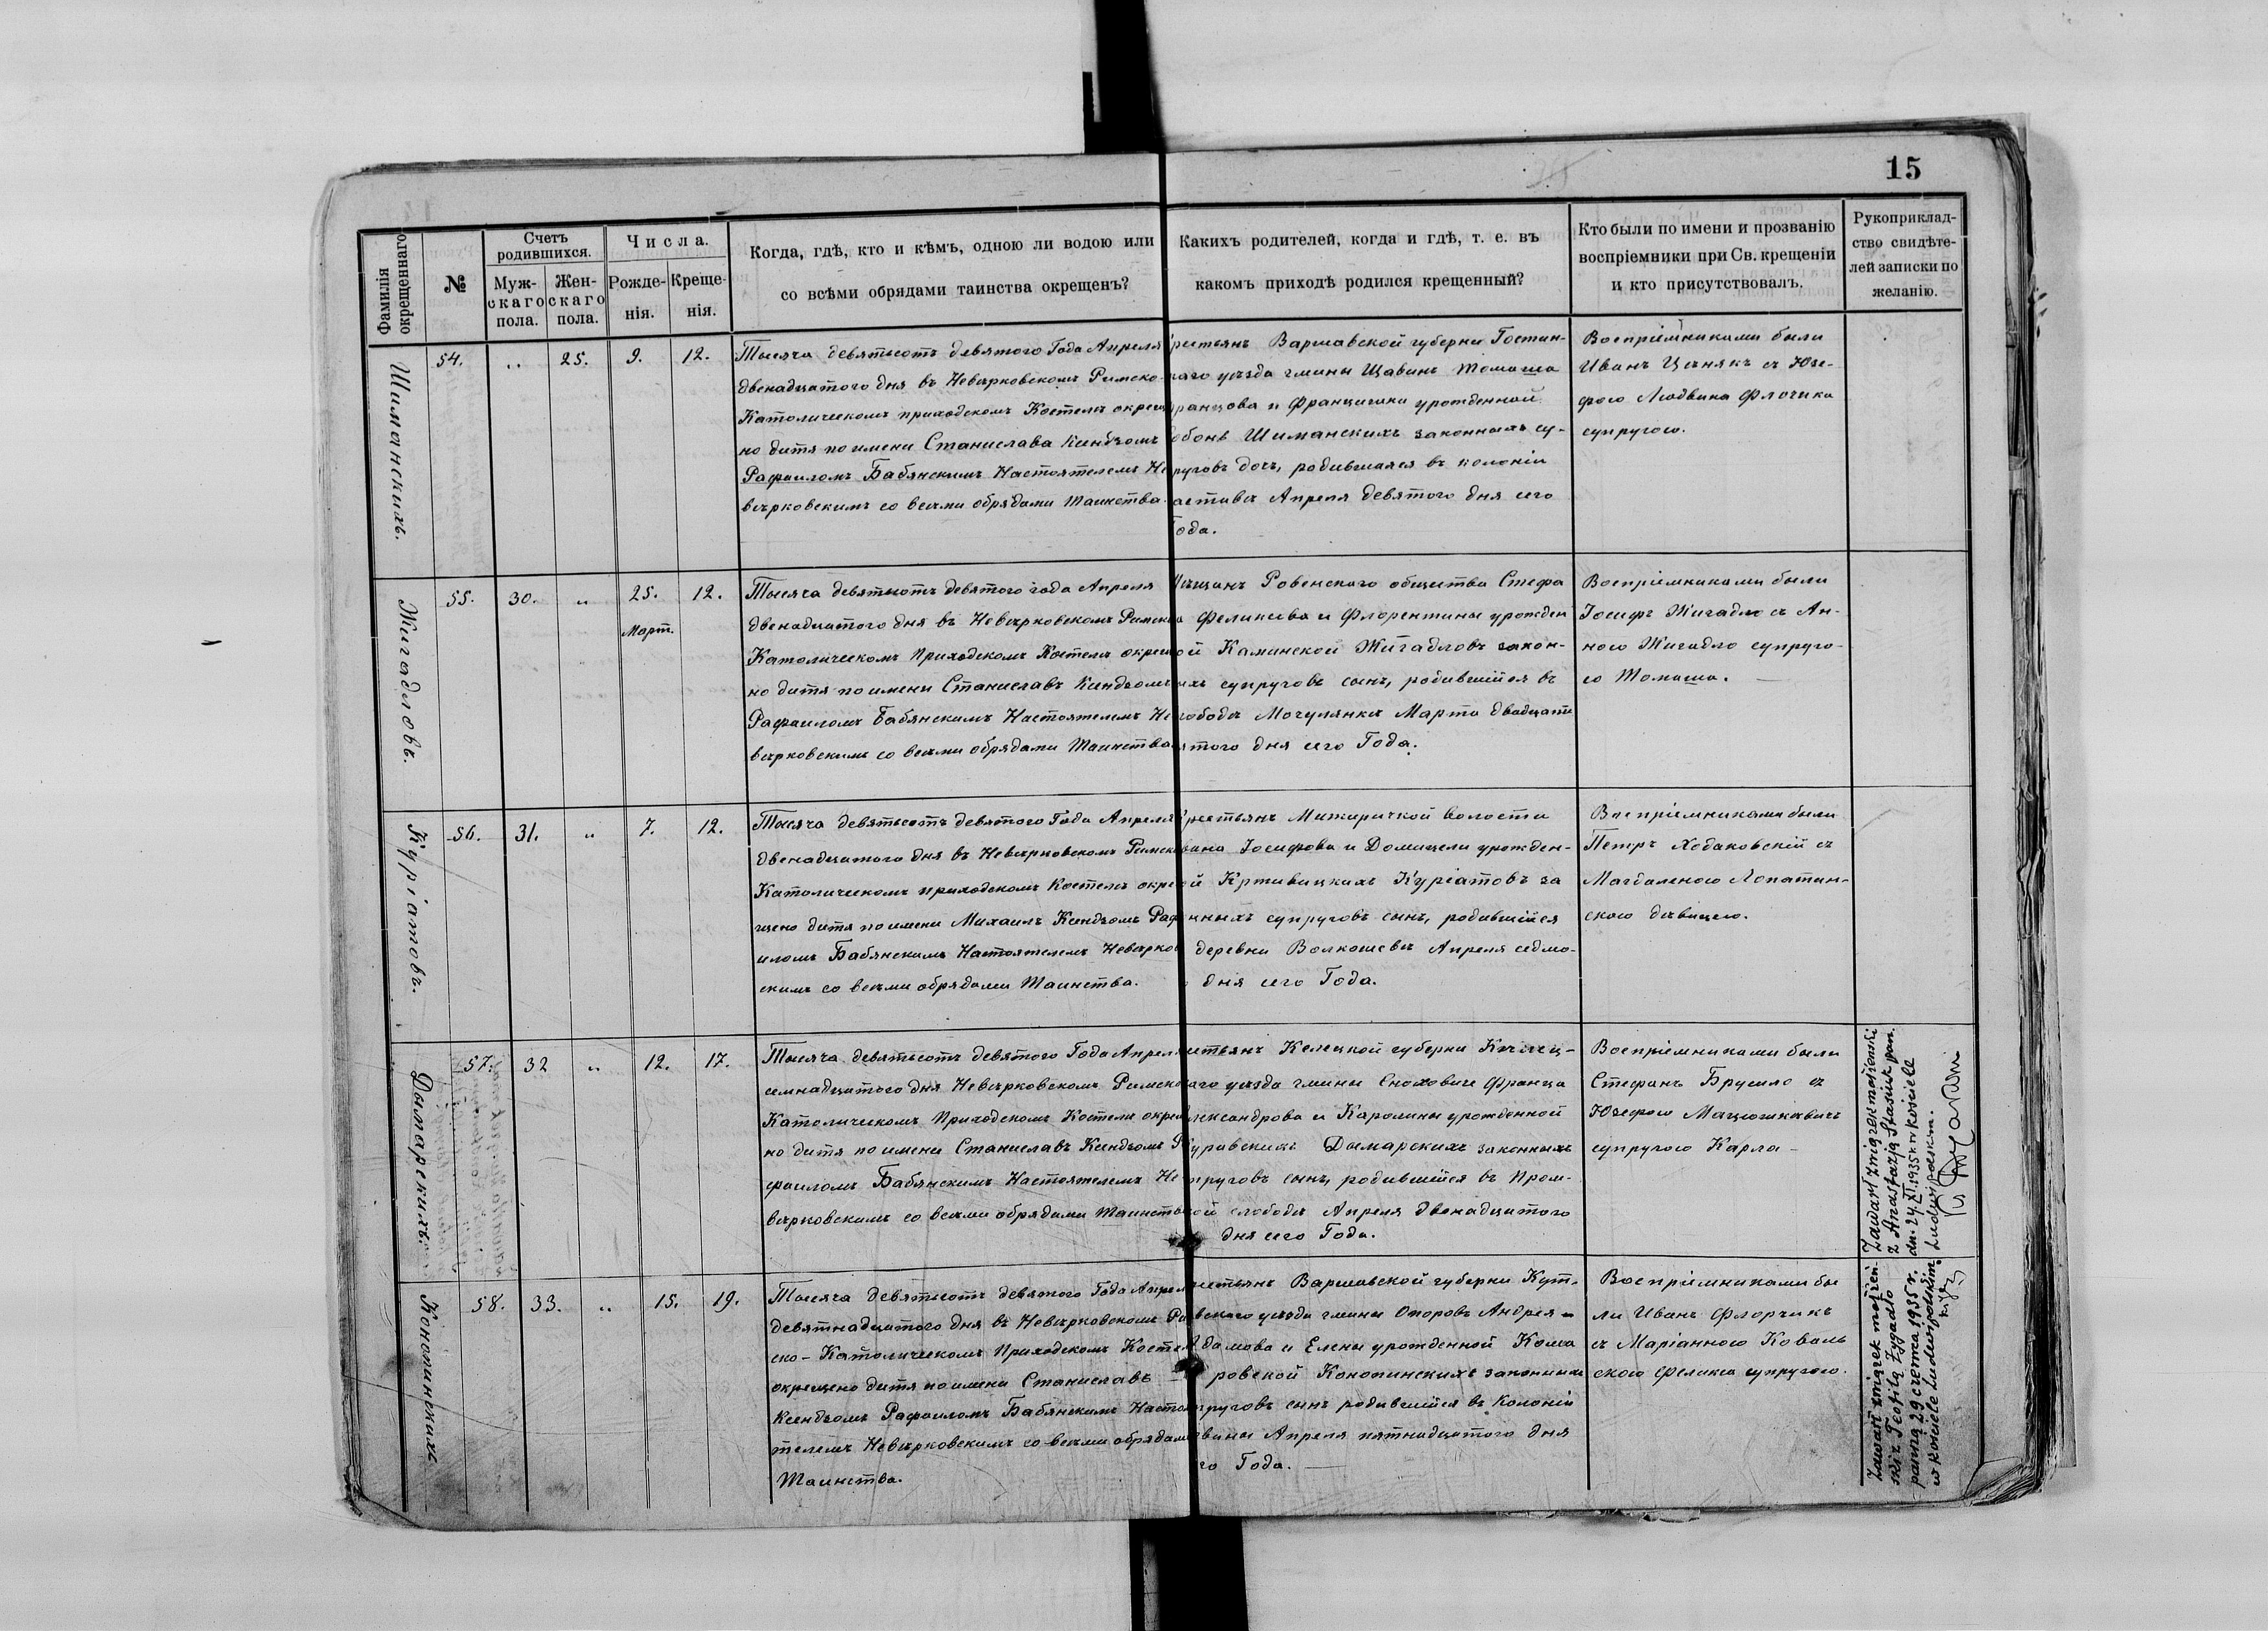 15
Фамилія окрещеннаго
№
Счетъ родившихся.
Муж-скаго пола.
Жен-скаго пола.
Числа.
Рожде-нія.
Креще-нія.
Когда, гдѣ, кто и кѣмъ, одною ли водою или
со всѣми обрядами таинства окрещенъ?
Какихъ родителей, когда и гдѣ, т. е. въ
какомъ приходѣ родился крещенный?
Кто были по имени и прозванію
воспріемники при Св. крещеніи
и кто присутствовалъ.
Рукоприклад-
ство свидѣте-
лей записки по
желанію.
Шиманскихъ.
54. „ 25. 9. 12.
Тысяча девятьсотъ девятого Года Апреля
двенадцатого дня въ Невѣрковскомъ Римско-
Католическомъ приходскомъ Костелѣ окреще
но дитя по имени Станислава Ксендзомъ
Рафаиломъ Бабянскимъ Настоятелемъ Не
вѣрковскимъ со всѣми обрядами Таинства.
рестьянъ Варшавской губерни Гостин-
наго уѣзда гмины Щавинъ Томаша
ранцова и Францишки урожденной
обонь Шиманскихъ законныхъ су-
руговъ дочь, родившаяся въ колоніи
Апреля девятого дня сего
Года.
Воспріемниками были
Иванъ Цѣнякъ съ Юзе-
фою Людвика Флочика
супругою.
Жигадловъ.
55. 30. „ 25. 12.
Март.
Тысяча девятьсотъ девятого года Апреля
двенадцатого дня въ Невѣрковскомъ Римско
Католическомъ Приходскомъ Костелѣ окреще
но дитя по имени Станиславъ Ксендзомъ
Рафаиломъ Бабянскимъ Настоятелемъ Не
вѣрковскимъ со всѣми обрядами Таинства
Мѣщанъ Ровенского общества Стефа
а Феликсова и Флорентины урожден
ой Каминской Жигадловъ закон-
ыхъ супруговъ сынъ, родившійся въ
слободѣ Мочулянкѣ Марта двадцать
ятого дня сего Года.
Воспріемниками были
Іосифъ Жигадло съ Ан-
ною Жигадло супруго-
ю Томаша.
Куріатовъ.
56. 31. „ 7. 12.
Тысяча девятьсотъ девятого Года Апреля
двенадцатого дня въ Невѣрковскомъ Римско
Католическомъ приходскомъ Костелѣ окре
щено дитя по имени Михаилъ Ксендзомъ Раф
иломъ Бабянскимъ Настоятелемъ Невѣрков
скимъ со всѣми обрядами Таинства.
рестьянъ Межиричкой волости
вана Іосифова и Домицели урожден-
ой Крживицкихъ Куріатовъ за
нныхъ супруговъ сынъ, родившійся
деревни Волкошевѣ Апреля седмо-
дня сего Года.
Воспріемниками были
Петръ Ходаковскій съ
Магдаленою Лопатин-
скою дѣвицею.
Дымарскихъ.
57. 32 „ 12. 17.
Тысяча девятьсотъ девятого Года Апреля
семнадцатого дня Невѣрковскомъ Римско
Католическомъ Приходскомъ Костелѣ окреще
но дитя по имени Станиславъ Ксендзомъ Ра
фаиломъ Бабянскимъ Настоятелемъ Не
вѣрковскимъ со всѣми обрядами Таинства
естьянъ Келецкой губерни Кѣлец-
каго уѣзда гмины Снохович Франца
лександрова и Каролины урожденной
Дымарскихъ законныхъ
пруговъ сынъ, родившійся въ Пром-
ой слободѣ Апреля двенадцатого
дня сего Года.
Воспріемниками были
Стефанъ Брусило съ
Юзефою Мацюшкевичъ
супругою Карла -
Zawarł związek małżeński
z Anastazją Stasiuk pan.
dn. 24/XI.1935 r. w kościele
Ludwipolskim.
Конопинскихъ
58. 33. „ 15. 19.
Тысяча девятьсотъ девятого Года Апреля
девятнадцатого дня въ Невѣрковскомъ Рим
ско-Католическомъ Приходскомъ Костел
окрещено дитя по имени Станиславъ -
Ксендзомъ Рафаиломъ Бабянскимъ Настоя
телемъ Невѣрковскимъ со всѣми обрядами
Таинства.
рестьянъ Варшавской губерни Кут-
вского уѣзда гмины Опоровъ Андрея -
Адамова и Елены урожденной Кома
ровской Конопинскихъ законныхъ
пруговъ сынъ родившійся въ Колоніи
Апреля пятнадцатого дня
го Года.
Воспріемниками бы
ли Иванъ Флорчикъ
съ Маріанною Коваль
скою Феликса супругою.
Zawarł związek małżeń-
ski z Teofilą Żygadło
panną 29 czerwca 1935 r.
w kościele Ludwipolskim.